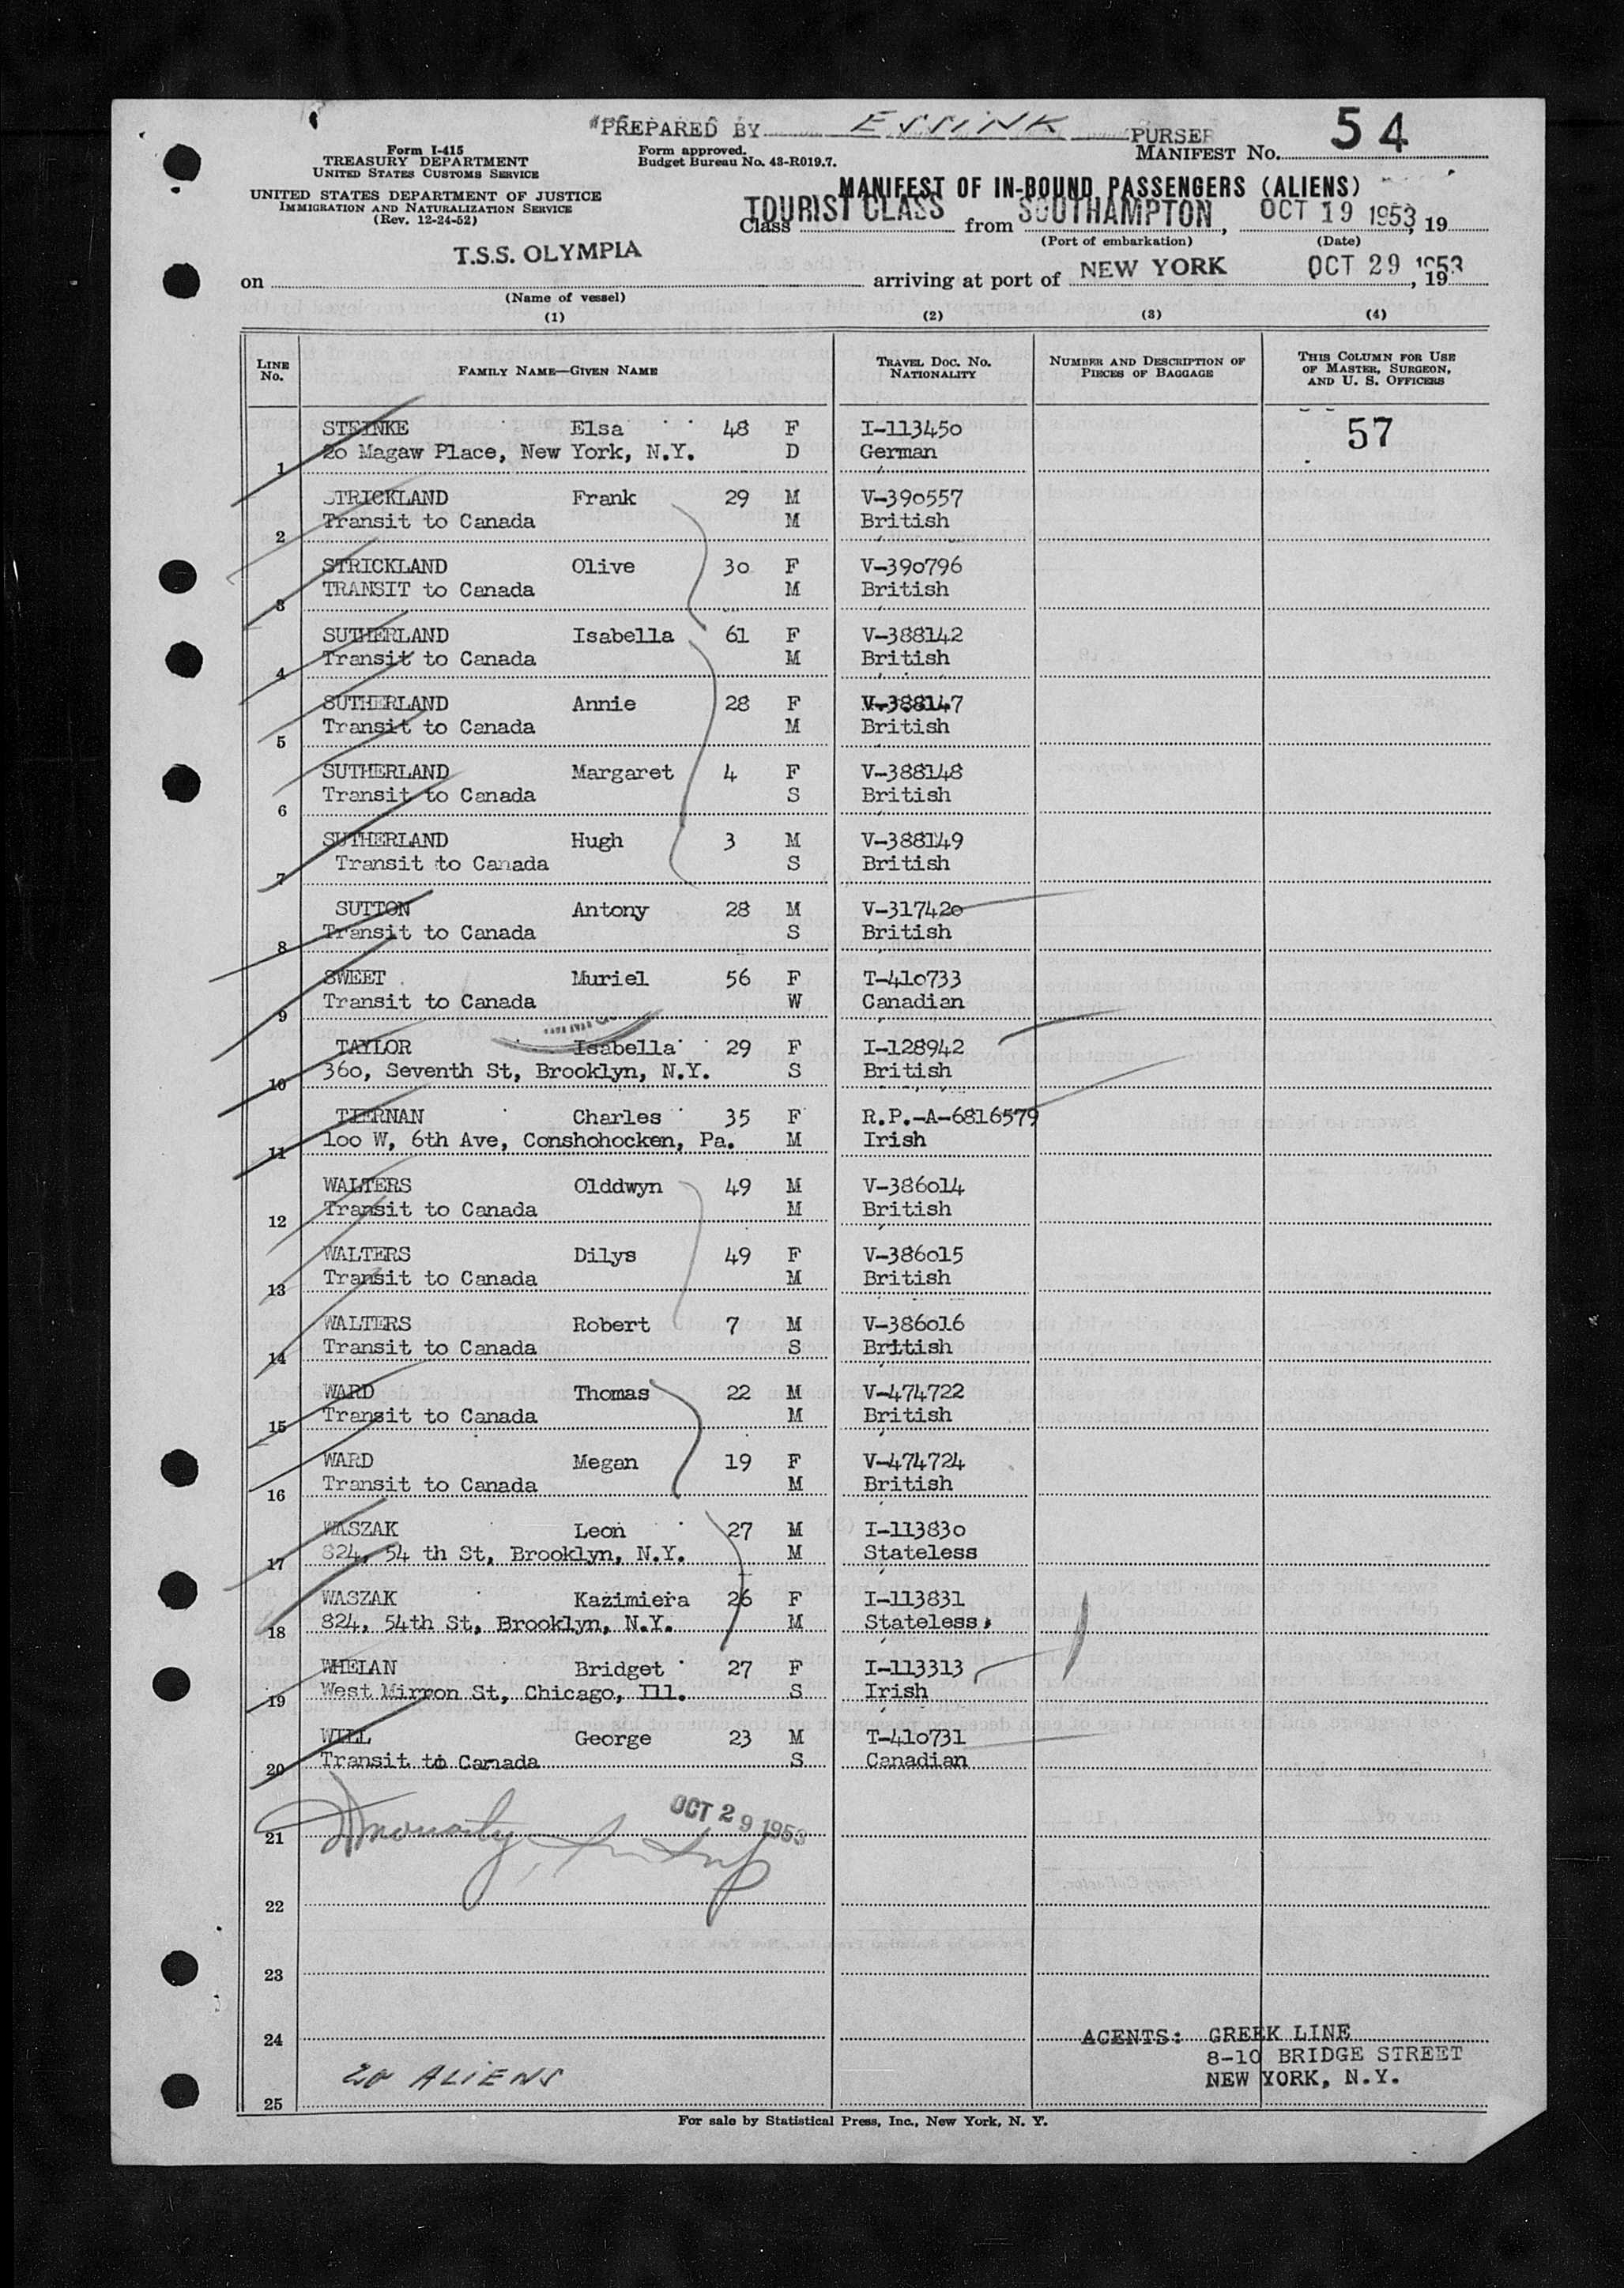 PREPARED BY ESSINK PURSER
54
Form I-415
TREASURY DEPARTMENT
UNITED STATES CUSTOMS SERVICE
Form approved.
Budget Bureau No. 43-R019.7.
MANIFEST NO.
UNITED STATES DEPARTMENT OF JUSTICE
IMMIGRATION AND NATURALIZATION SERVICE
(Rev. 12-24-52)
MANIFEST OF IN-BOUND PASSENGERS (ALIENS)
Class TOURIST CLASS from SOUTHAMPTON, OCT 19 1953, 19
(Port of embarkation) (Date)
on T.S.S. OLYMPIA arriving at port of NEW YORK OCT 29 1953, 19
(Name of vessel)
(1) (2) (3) (4)
LINE NO. FAMILY NAME—GIVEN NAME TRAVEL DOC. NO. NATIONALITY NUMBER AND DESCRIPTION OF PIECES OF BAGGAGE THIS COLUMN FOR USE OF MASTER, SURGEON, AND U. S. OFFICERS
STEINKE Elsa 48 F I-113450 57
1 20 Magaw Place, New York, N.Y. D German
STRICKLAND Frank 29 M V-390557
2 Transit to Canada M British
STRICKLAND Olive 30 F V-390796
3 TRANSIT to Canada M British
SUTHERLAND Isabella 61 F V-388142
4 Transit to Canada M British
SUTHERLAND Annie 28 F V-388147
5 Transit to Canada M British
SUTHERLAND Margaret 4 F V-388148
6 Transit to Canada S British
SUTHERLAND Hugh 3 M V-388149
7 Transit to Canada S British
SUTTON Antony 28 M V-317420
8 Transit to Canada S British
SWEET Muriel 56 F T-410733
9 Transit to Canada W Canadian
TAYLOR Isabella 29 F I-128942
10 360, Seventh St, Brooklyn, N.Y. S British
TIERNAN Charles 35 F R.P.-A-6816579
11 100 W, 6th Ave, Conshohocken, Pa. M Irish
WALTERS Olddwyn 49 M V-386014
12 Transit to Canada M British
WALTERS Dilys 49 F V-386015
13 Transit to Canada M British
WALTERS Robert 7 M V-386016
14 Transit to Canada S British
WARD Thomas 22 M V-474722
15 Transit to Canada M British
WARD Megan 19 F V-474724
16 Transit to Canada M British
WASZAK Leon 27 M I-113830
17 824, 54 th St, Brooklyn, N.Y. M Stateless
WASZAK Kazimiera 26 F I-113831
18 824, 54th St, Brooklyn, N.Y. M Stateless
WHELAN Bridget 27 F I-113313
19 West Mirron St, Chicago, Ill. S Irish
WILL George 23 M T-410731
20 Transit to Canada S Canadian
OCT 29 1953
21
22
23
24 AGENTS: GREEK LINE
8-10 BRIDGE STREET
20 ALIENS NEW YORK, N.Y.
25
For sale by Statistical Press, Inc., New York, N. Y.